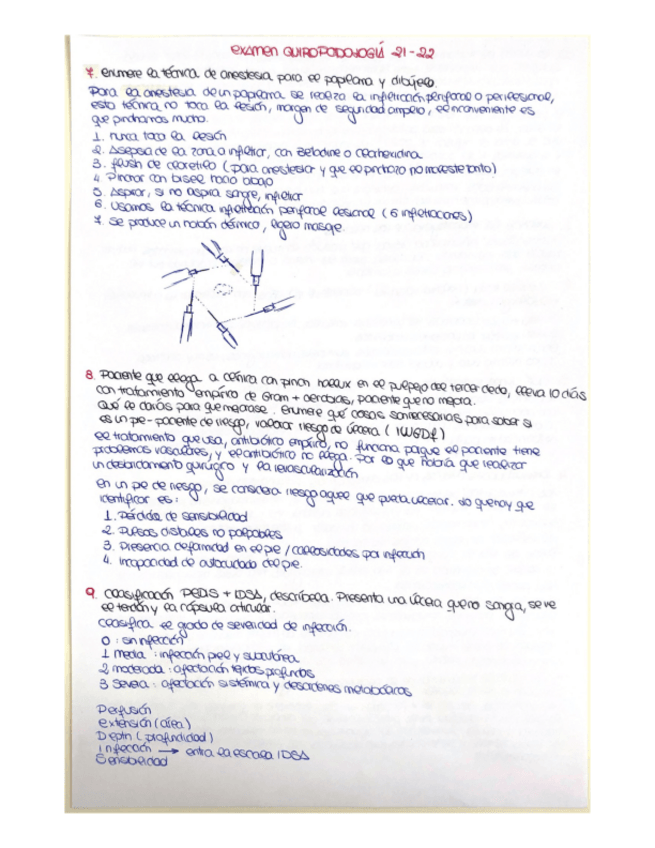 Examen QUIROPODOLOGIÁ 21-22
7. Enumere la técnica de anestesia para el papiloma y dibújelo.
Para la anestesia de un papiloma se realiza la infiltración perifocal o perilesional,
esta técnica no toca la lesión, margen de seguridad amplio, el inconveniente es
que pinchamos mucho.
1. nunca toco la lesión
2. Asepsia de la zona a infiltrar, con Betadine o clorhexidina
3. flush de cloretilo (para anestesiar y que el pinchazo no moleste tanto)
4. Pinchar con bisel hacia abajo
5. Aspirar, si no aspira sangre, infiltrar
6. Usamos la técnica infiltración perifocal lesional (6 infiltraciones)
7. se produce un habón dérmico, ligero masaje.
8. Paciente que llega a clínica con pinch hallux en el pulpejo del tercer dedo, lleva 10 días
con tratamiento empírico de Gram + aerobias, paciente que no mejora.
Qué le darías para que mejorase. Enumere qué cosas son necesarias para saber si
es un pie-paciente de riesgo, valorar riesgo de úlcera (IWGDF)
el tratamiento que usa, antibiótico empírico, no funciona porque el paciente tiene
problemas vasculares, y el antibiótico no llega. Por lo que habría que realizar
un desbridamiento quirúrgico y la revascularización
en un pie de riesgo, se considera riesgo aquel que pueda ulcerar. Lo que hay que
identificar es:
1. Pérdida de sensibilidad
2. Pulsos distales no palpables
3. Presencia deformidad en el pie / callosidades por infección
4. Incapacidad de autocuidado del pie.
9. Clasificación PEDIS + IDSA, descríbela. Presenta una úlcera que no sangra, se ve
el tendón y la cápsula articular.
Clasifica el grado de severidad de infección.
0 : sin infección
1 media : infección piel y subcutánea
2 moderada : afectación tejidos profundos
3 Severa : afectación sistémica y desórdenes metabólicos
Perfusión
Extensión (área)
Depth (profundidad)
Infección → entra la escala IDSA
Sensibilidad